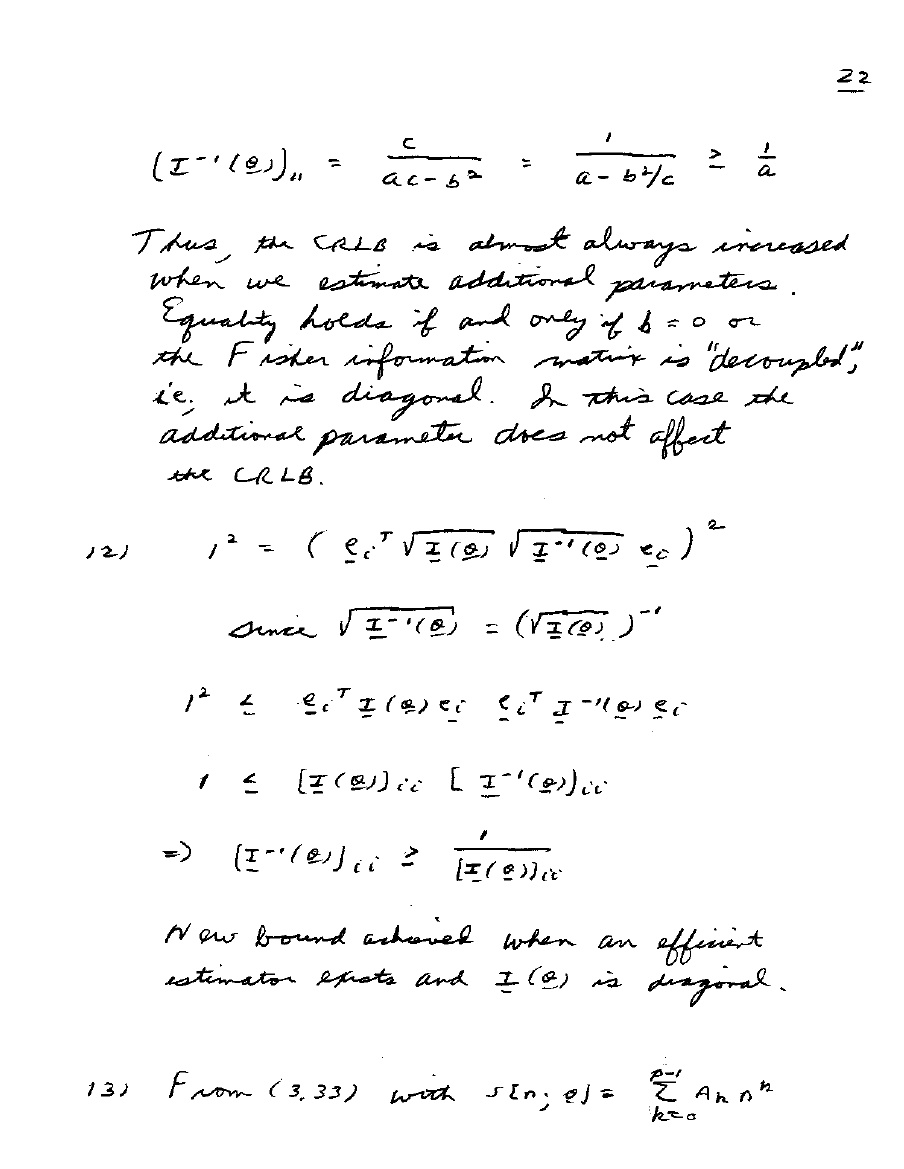 22
(I⁻¹(θ))₁₁ = c / (ac - b²) = 1 / (a - b²/c) ≥ 1/a
Thus, the CRLB is almost always increased
when we estimate additional parameters.
Equality holds if and only if b = 0 or
the Fisher information matrix is "decoupled",
i.e., it is diagonal. In this case the
additional parameter does not affect
the CRLB.
12) 1² = ( eᵢᵀ √I(θ) √I⁻¹(θ) eᵢ )²
since √I⁻¹(θ) = (√I(θ))⁻¹
1² ≤ eᵢᵀ I(θ) eᵢ eᵢᵀ I⁻¹(θ) eᵢ
1 ≤ [I(θ)]ᵢᵢ [I⁻¹(θ)]ᵢᵢ
⇒ [I⁻¹(θ)]ᵢᵢ ≥ 1 / [I(θ)]ᵢᵢ
New bound achieved when an efficient
estimator exists and I(θ) is diagonal.
13) From (3.33) with s[n; θ] = Σ_{k=0}^{p-1} Aₖ nᵏ